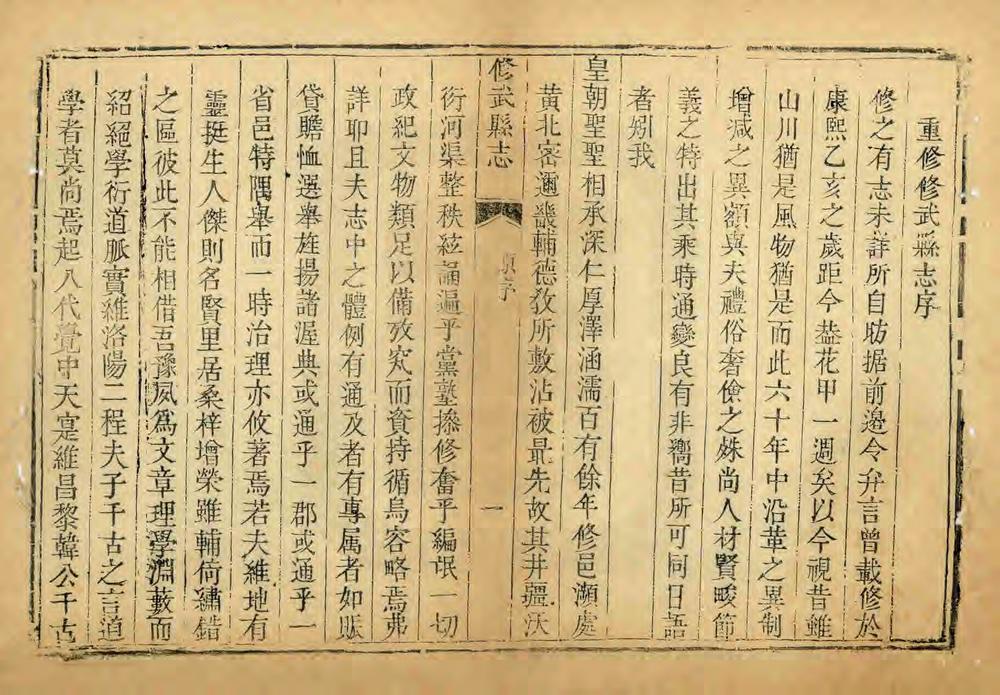 重修修武縣志序
修之有志未詳所自昉据前邊令弁言曾載修於
康熙乙亥之歲距今葢花甲一週矣以今視昔雖
山川猶是風物猶是而此六十年中沿革之異制
增減之異額與夫禮俗奢儉之殊尚人材賢畯節
義之特出其乘時通變良有非嚮昔所可同日語
者矧我
皇朝聖聖相承深仁厚澤涵濡百有餘年修邑瀕處
黃北密邇畿輔德教所敷沾被最先故其井疆沃
修武縣志
序
一
衍河渠整秩絃誦遍乎黨塾搽修奮乎編氓一切
政紀文物類足以備攷究而資持循烏容略焉弗
詳耶且夫志中之體例有通及者有專属者如賑
貸贍恤選舉旌揚諸渥典或通乎一郡或通乎一
省邑特隅舉而一時治理亦攸著焉若夫維地有
靈挺生人傑則名賢里居桑梓增榮雖輔倚繡錯
之區彼此不能相借吾豫夙爲文章理學淵藪而
紹絕學衍道脈實維洛陽二程夫子千古之言道
學者莫尚焉起八代亹中天寔維昌黎韓公千古